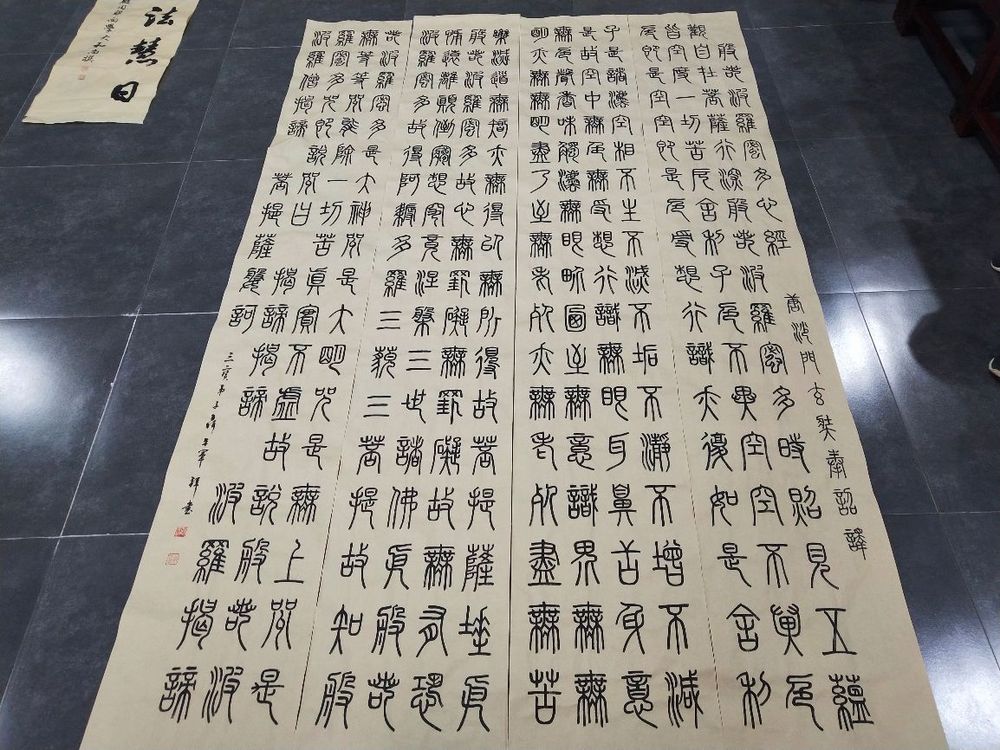 般若波羅蜜多心經
唐沙門玄奘奉詔譯
觀自在菩薩行深般若波羅蜜多時照見五蘊
皆空度一切苦厄舍利子色不異空空不異色
色即是空空即是色受想行識亦復如是舍利
子是諸法空相不生不滅不垢不淨不增不減
是故空中無色無受想行識無眼耳鼻舌身意
無色聲香味觸法無眼界乃至無意識界無無
明亦無無明盡乃至無老死亦無老死盡無苦
集滅道無智亦無得以無所得故菩提薩埵依
般若波羅蜜多故心無罣礙無罣礙故無有恐
怖遠離顛倒夢想究竟涅槃三世諸佛依般若
波羅蜜多故得阿耨多羅三藐三菩提故知般
若波羅蜜多是大神咒是大明咒是無上咒是
無等等咒能除一切苦真實不虛故說般若波
羅蜜多咒即說咒曰揭諦揭諦波羅揭諦
波羅僧揭諦菩提薩婆訶
三寶弟子軍拜書
法慧日